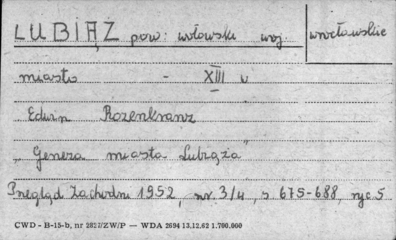 LUBIĄŻ pow: wołowski woj. wrocławskie
miasto - XIII w
Edwin Rozenkranz
„Geneza miasta Lubiąża"
Przegląd Zachodni 1952, nr. 3/4, s 675-688, ryc 5
CWD - B-15-b, nr 2827/ZW/P — WDA 2694 13.12.62 1.700.000